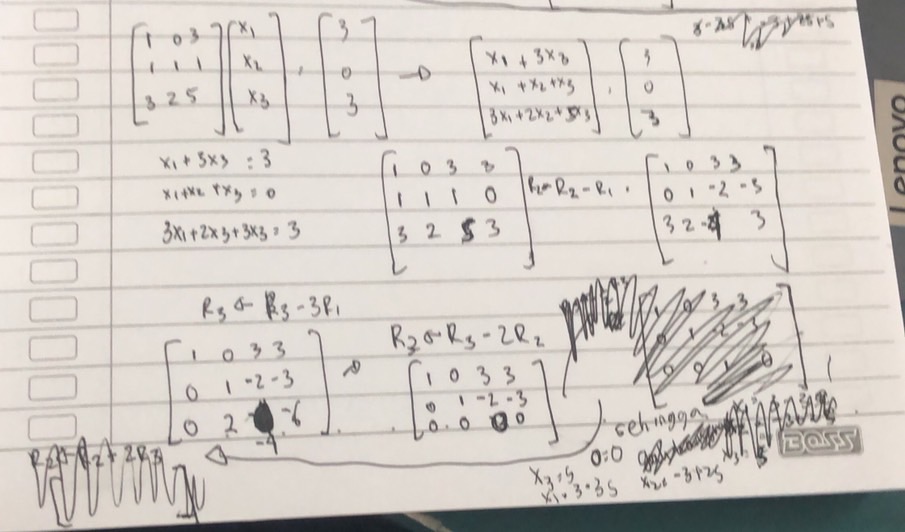 [1 0 3; 1 1 1; 3 2 5] [x1; x2; x3] . [3; 0; 3] → [x1 + 3x3; x1 + x2 + x3; 3x1 + 2x2 + 5x3] . [3; 0; 3]
x1 + 3x3 = 3
x1 + x2 + x3 = 0
3x1 + 2x3 + 3x3 = 3
[1 0 3 3; 1 1 1 0; 3 2 5 3] R2 ← R2 - R1 . [1 0 3 3; 0 1 -2 -3; 3 2 -4 3]
R3 ← R3 - 3R1
[1 0 3 3; 0 1 -2 -3; 0 2 -4 -6]
R3 ← R3 - 2R2
[1 0 3 3; 0 1 -2 -3; 0 0 0 0]
sehingga
0=0
x3 = s
x1 = 3 - 3s
x2 = -3 + 2s
BOSS
Lenovo